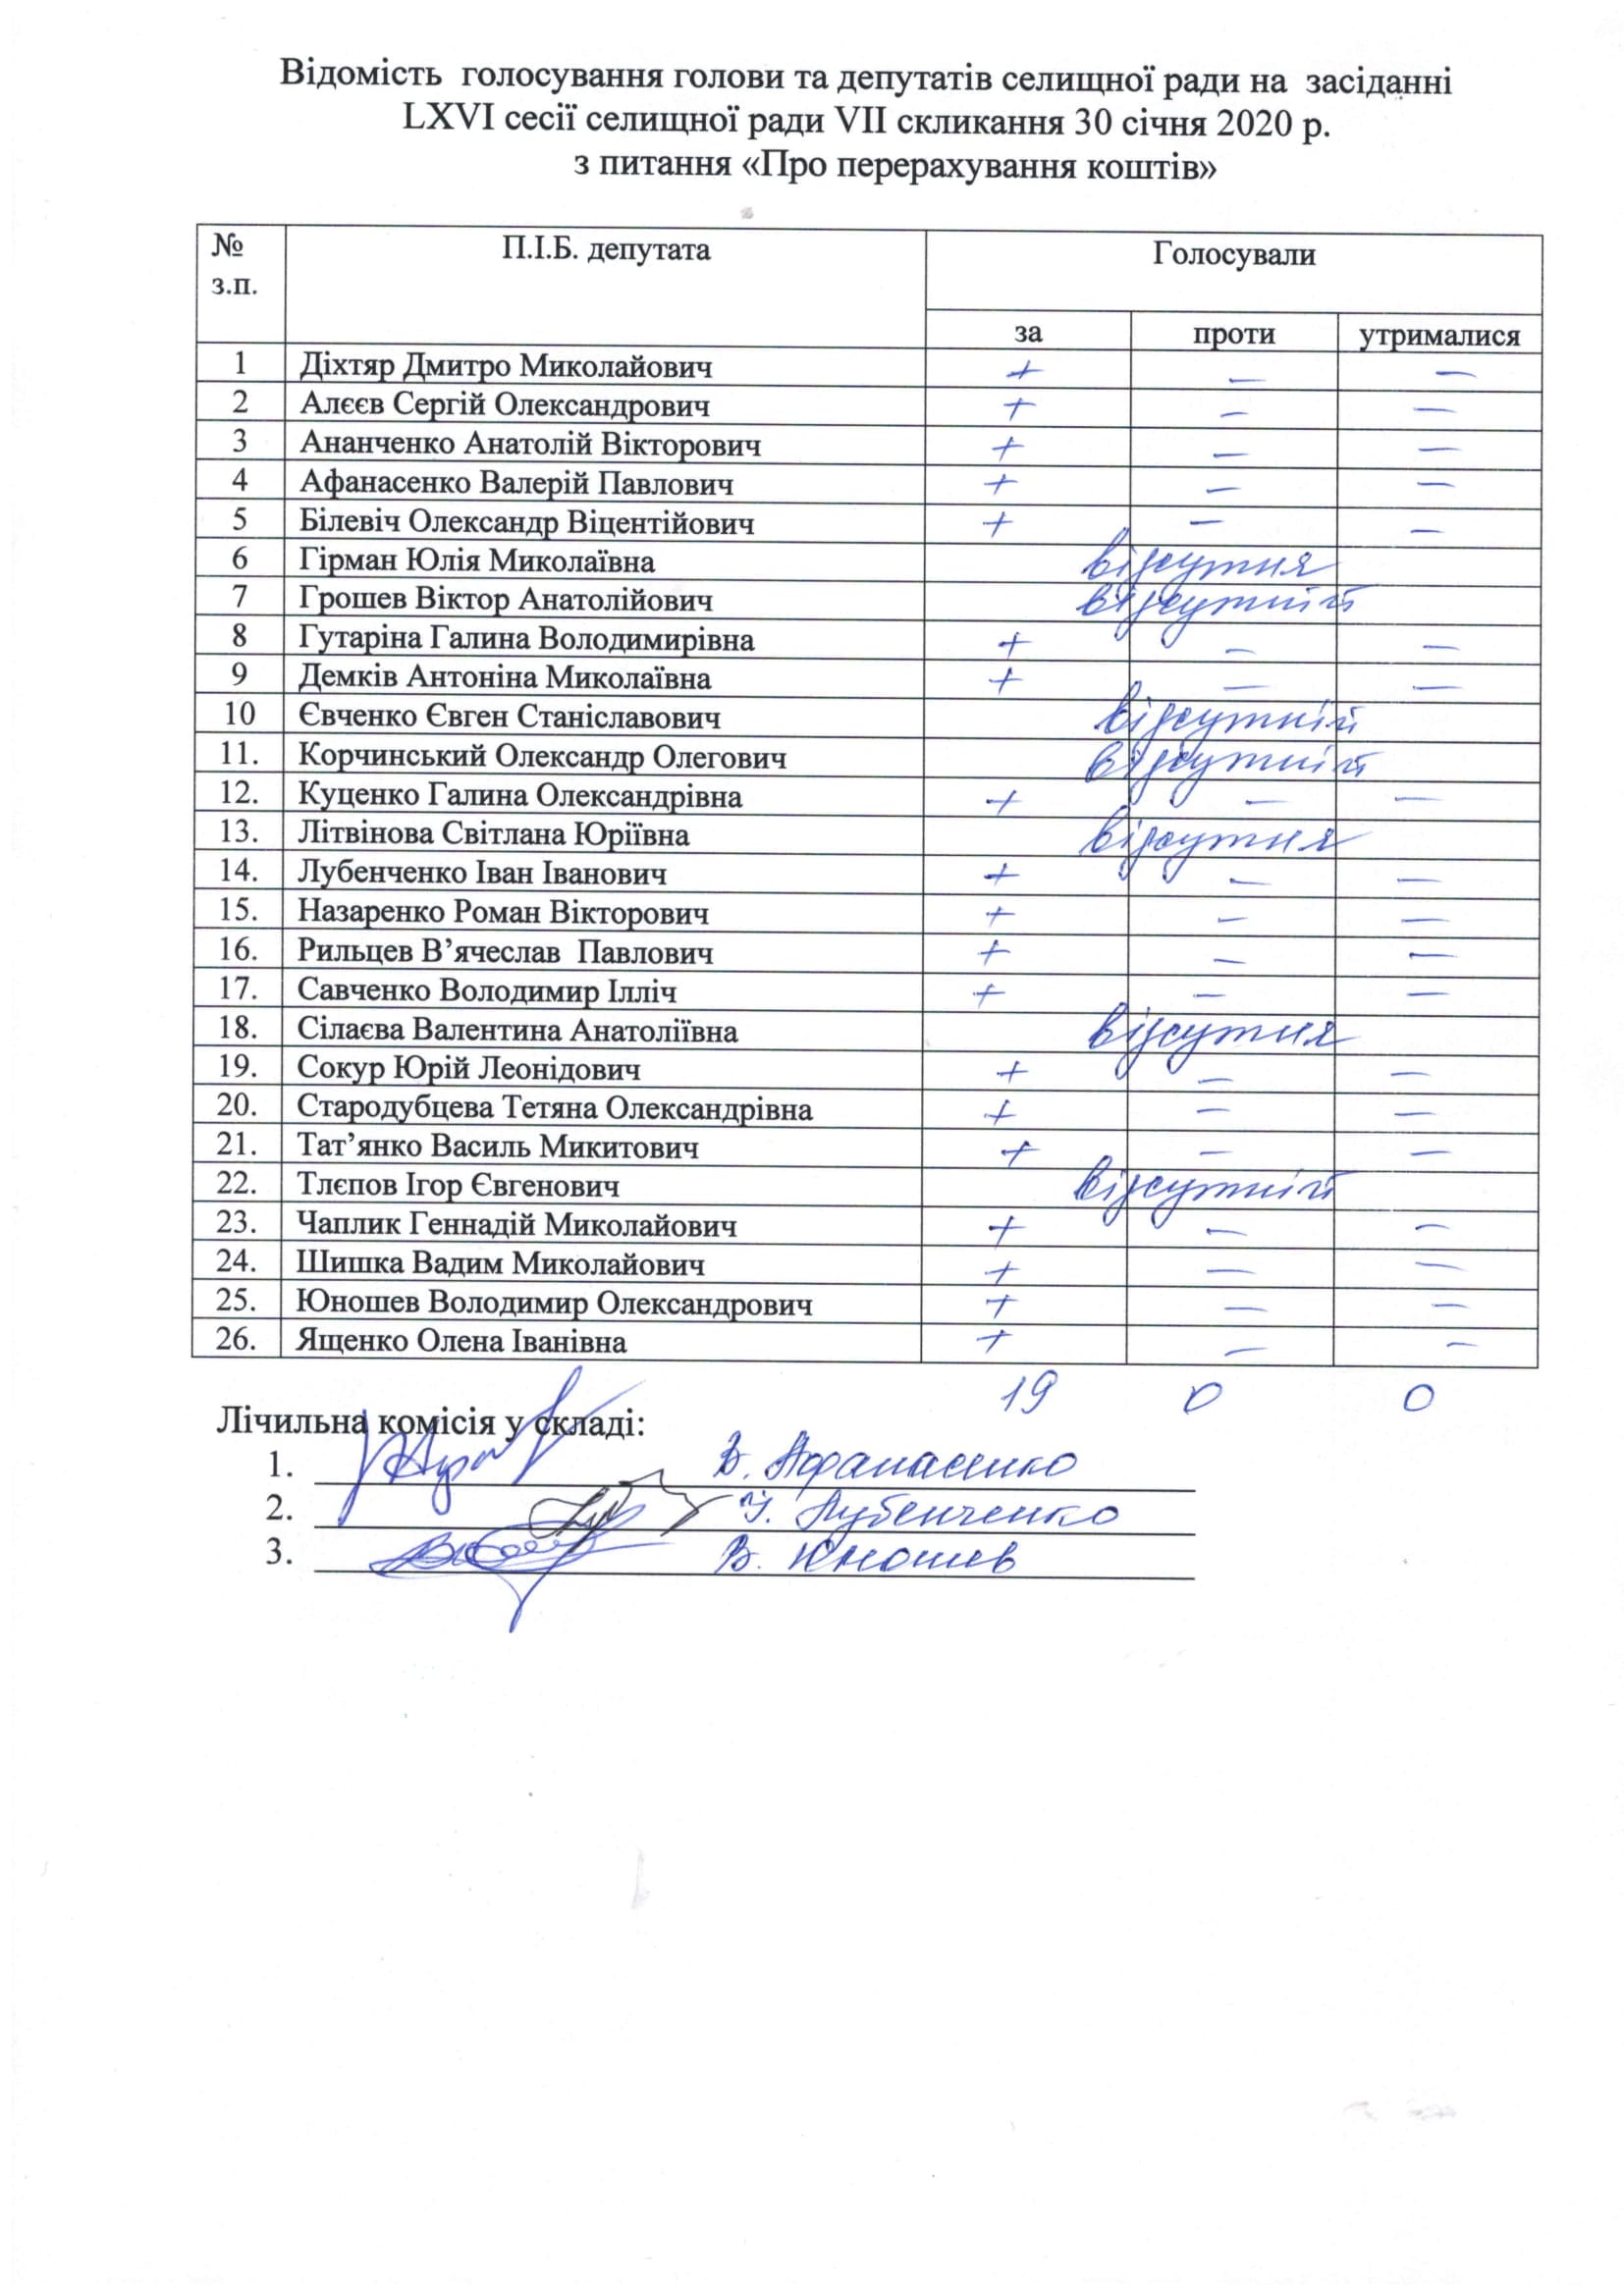 Відомість голосування голови та депутатів селищної ради на засіданні
LXVI сесії селищної ради VII скликання 30 січня 2020 р.
з питання «Про перерахування коштів»
№ з.п. П.І.Б. депутата Голосували
за проти утрималися
1 Діхтяр Дмитро Миколайович + — —
2 Алєєв Сергій Олександрович + — —
3 Ананченко Анатолій Вікторович + — —
4 Афанасенко Валерій Павлович + — —
5 Білевіч Олександр Віцентійович + — —
6 Гірман Юлія Миколаївна відсутня
7 Грошев Віктор Анатолійович відсутній
8 Гутаріна Галина Володимирівна + — —
9 Демків Антоніна Миколаївна + — —
10 Євченко Євген Станіславович відсутній
11. Корчинський Олександр Олегович відсутній
12. Куценко Галина Олександрівна + — —
13. Літвінова Світлана Юріївна відсутня
14. Лубенченко Іван Іванович + — —
15. Назаренко Роман Вікторович + — —
16. Рильцев В’ячеслав Павлович + — —
17. Савченко Володимир Ілліч + — —
18. Сілаєва Валентина Анатоліївна відсутня
19. Сокур Юрій Леонідович + — —
20. Стародубцева Тетяна Олександрівна + — —
21. Тат’янко Василь Микитович + — —
22. Тлєпов Ігор Євгенович відсутній
23. Чаплик Геннадій Миколайович + — —
24. Шишка Вадим Миколайович + — —
25. Юношев Володимир Олександрович + — —
26. Ященко Олена Іванівна + — —
19 0 0
Лічильна комісія у складі:
1. В. Афанасенко
2. І. Лубенченко
3. В. Юношев